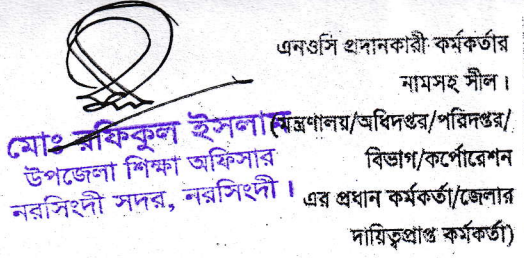 এনওসি প্রদানকারী কর্মকর্তার
নামসহ সীল।
(মন্ত্রণালয়/অধিদপ্তর/পরিদপ্তর/
বিভাগ/কর্পোরেশন
এর প্রধান কর্মকর্তা/জেলার
দায়িত্বপ্রাপ্ত কর্মকর্তা)
মোঃ রফিকুল ইসলাম
উপজেলা শিক্ষা অফিসার
নরসিংদী সদর, নরসিংদী।